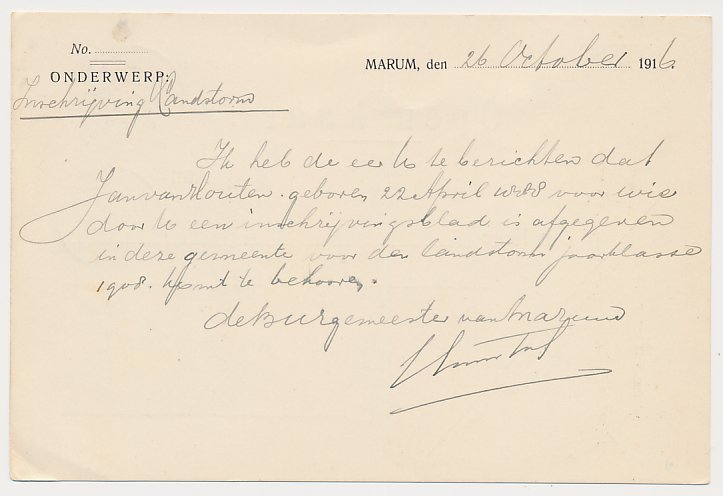 No.
MARUM, den 26 October 1916.
ONDERWERP:
Inschrijving Landstorm
Ik heb de eer U te berichten dat
Jan van Houten geboren 22 April 1888 voor wie
door U een inschrijvingsblad is afgegeven
in deze gemeente voor den landstorm jaarklasse
1908. komt te behooren.
de Burgemeester van Marum